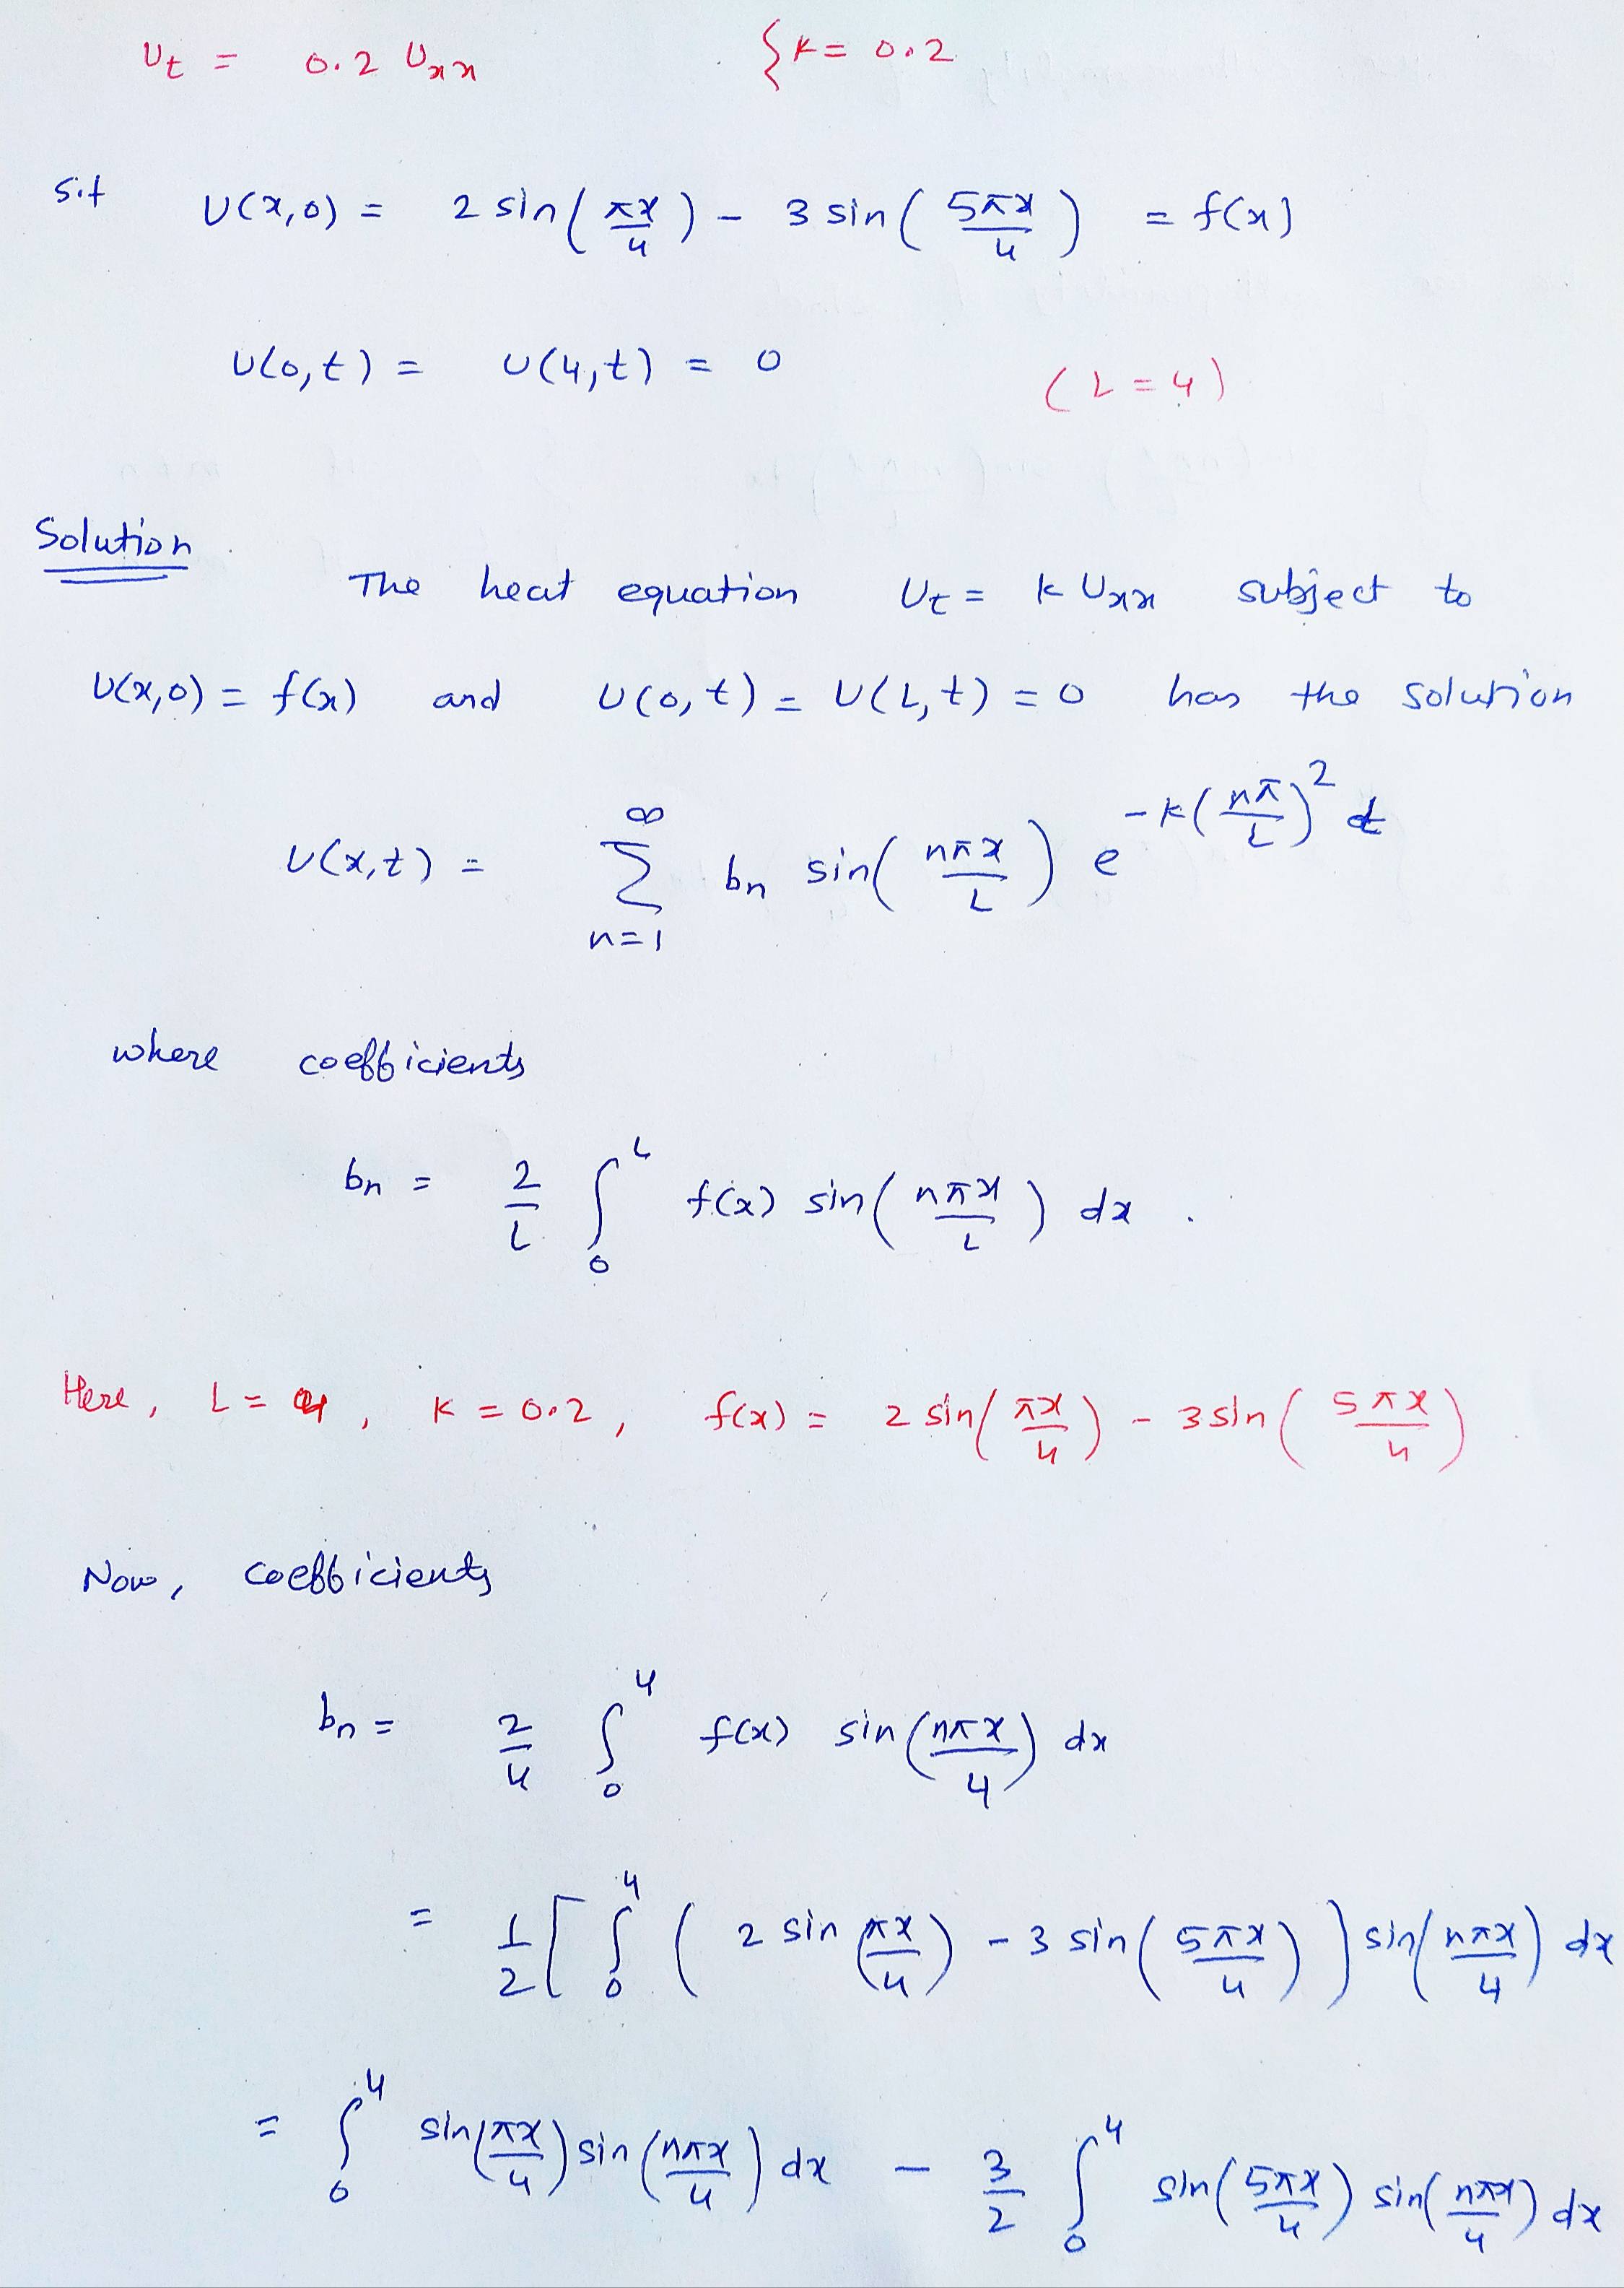 Ut = 0.2 Uxx { k = 0.2
s.t U(x,0) = 2 sin(πx/4) - 3 sin(5πx/4) = f(x)
U(0,t) = U(4,t) = 0 (L = 4)
Solution
The heat equation Ut = k Uxx subject to
U(x,0) = f(x) and U(0,t) = U(L,t) = 0 has the solution
U(x,t) = ∑_{n=1}^{∞} bn sin(nπx/L) e^{-k(nπ/L)^2 t}
where coefficients
bn = 2/L ∫_0^L f(x) sin(nπx/L) dx .
Here, L = 4, K = 0.2, f(x) = 2 sin(πx/4) - 3 sin(5πx/4)
Now, coefficients
bn = 2/4 ∫_0^4 f(x) sin(nπx/4) dx
= 1/2 [ ∫_0^4 ( 2 sin(πx/4) - 3 sin(5πx/4) ) sin(nπx/4) dx
= ∫_0^4 sin(πx/4) sin(nπx/4) dx - 3/2 ∫_0^4 sin(5πx/4) sin(nπx/4) dx